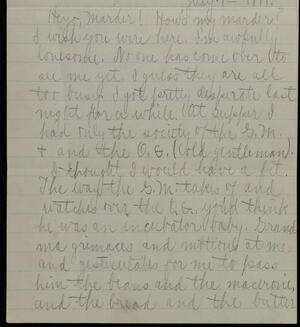 Hey, Marder! How's my marder?
I wish you were here. I'm awfully
lonesome. No one has come over to
see me yet. I guess they are all
too busy. I got pretty desperate last
night for a while. At supper I
had only the society of the G.M.
+ and the O.G. (old gentleman).
I thought I would have a fit.
The way the G.M. takes of and
watches over the O.G. you'd think
he was an incubator baby. Grand
ma grimaces and motions at me
and gesticulates for me to pass
him the beans and the macaroni,
and the bread and the butter